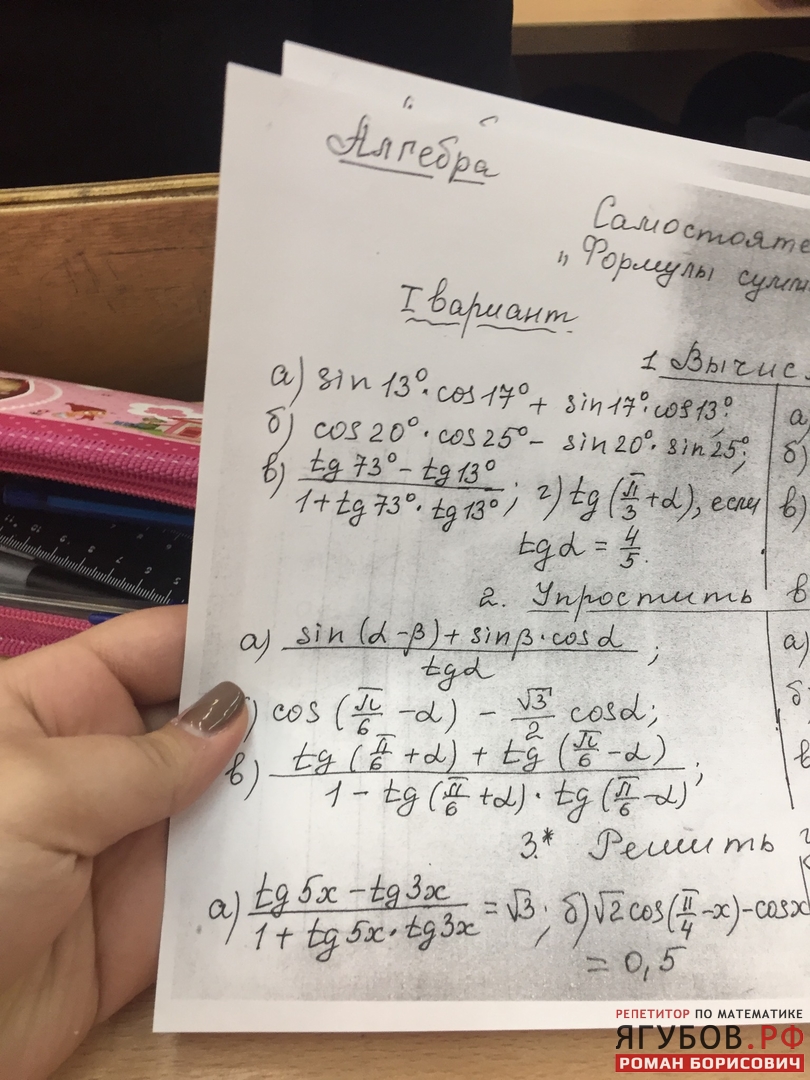 Алгебра
Самостояте
„Формулы сумм
I вариант
1 Вычис
а) sin 13°·cos17° + sin17°·cos13°;
а
б) cos 20°·cos25° - sin20°·sin25°;
б)
в) (tg 73° - tg13°)/(1+tg73°·tg13°); г) tg(π/3+α), если
в)
tgα = 4/5.
2. Упростить
в
а) (sin(α-β)+sinβ·cosα)/tgα;
а)
) cos(π/6-α) - √3/2 cosα;
б
в) (tg(π/6+α)+tg(π/6-α))/(1-tg(π/6+α)·tg(π/6-α));
в
3.* Решить
а) (tg5x-tg3x)/(1+tg5x·tg3x) = √3; б) √2cos(π/4-x)-cosx
= 0,5
РЕПЕТИТОР ПО МАТЕМАТИКЕ
ЯГУБОВ.РФ
РОМАН БОРИСОВИЧ